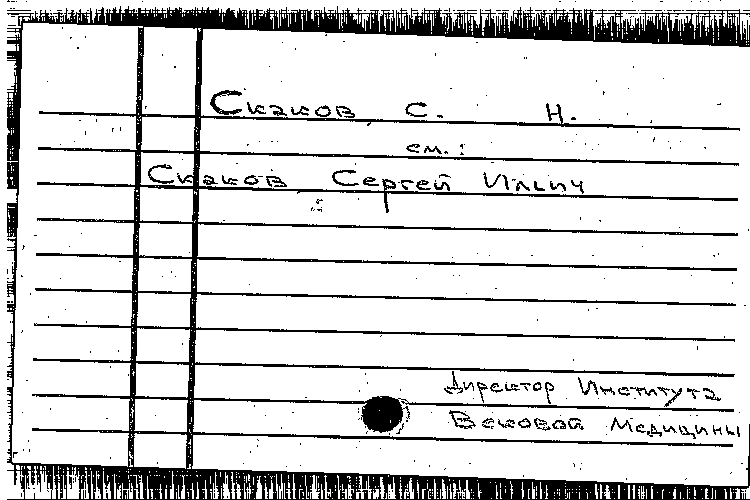 Скаков, С. Н.
см.:
Скаков Сергей Ильич
Директор Института
Вековой Медицины